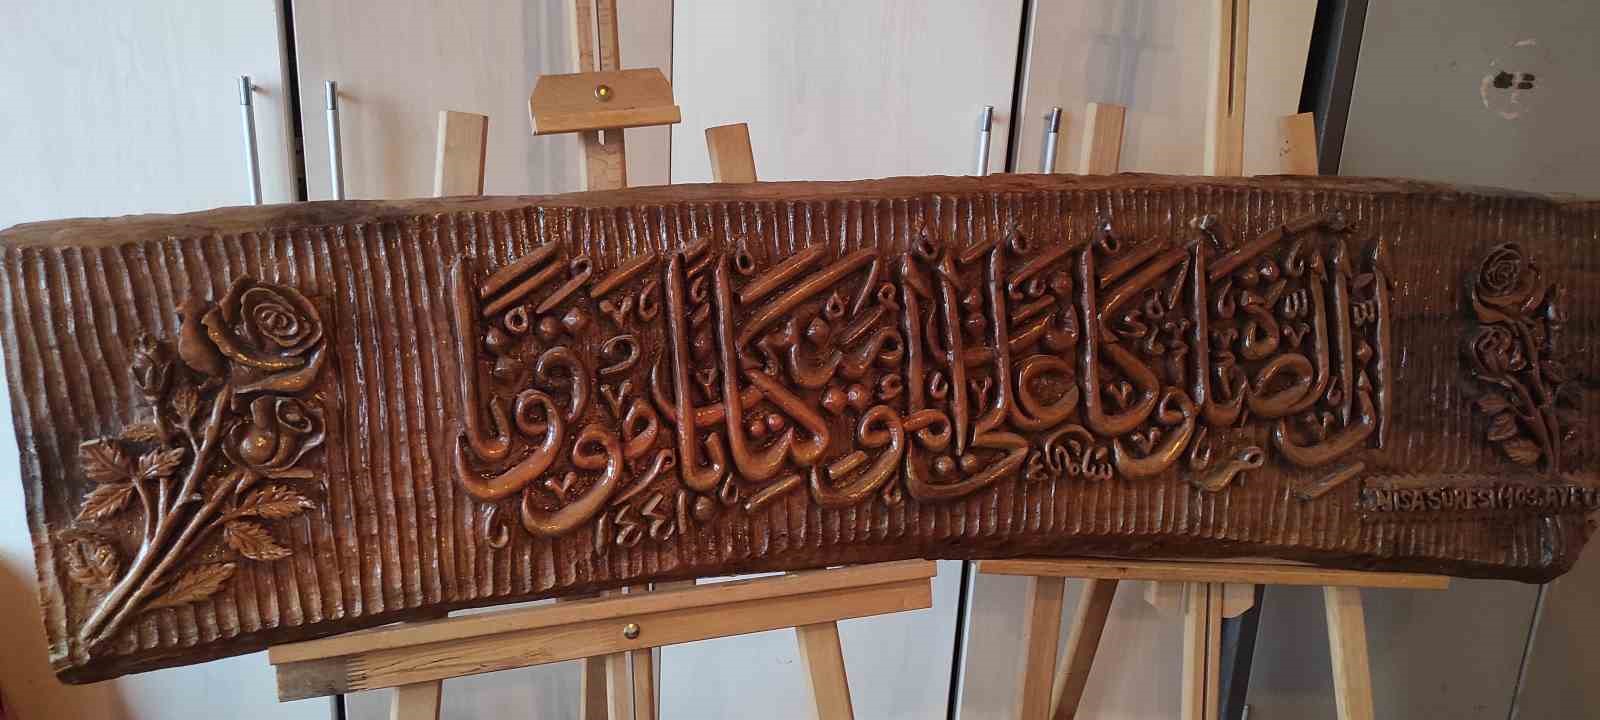 اِنَّ الصَّلٰوةَ كَانَتْ عَلَى الْمُؤْمِنِينَ كِتَابًا مَوْقُوتًا
١٤٤١
NİSA SURESİ 103. AYET